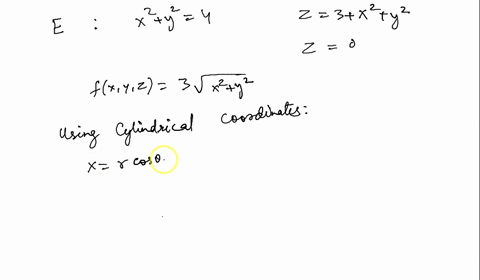 E : x²+y²=4 z=3+x²+y²
z = 0
f(x,y,z) = 3√x²+y²
Using Cylindrical Coordinates:
x = r cosθ